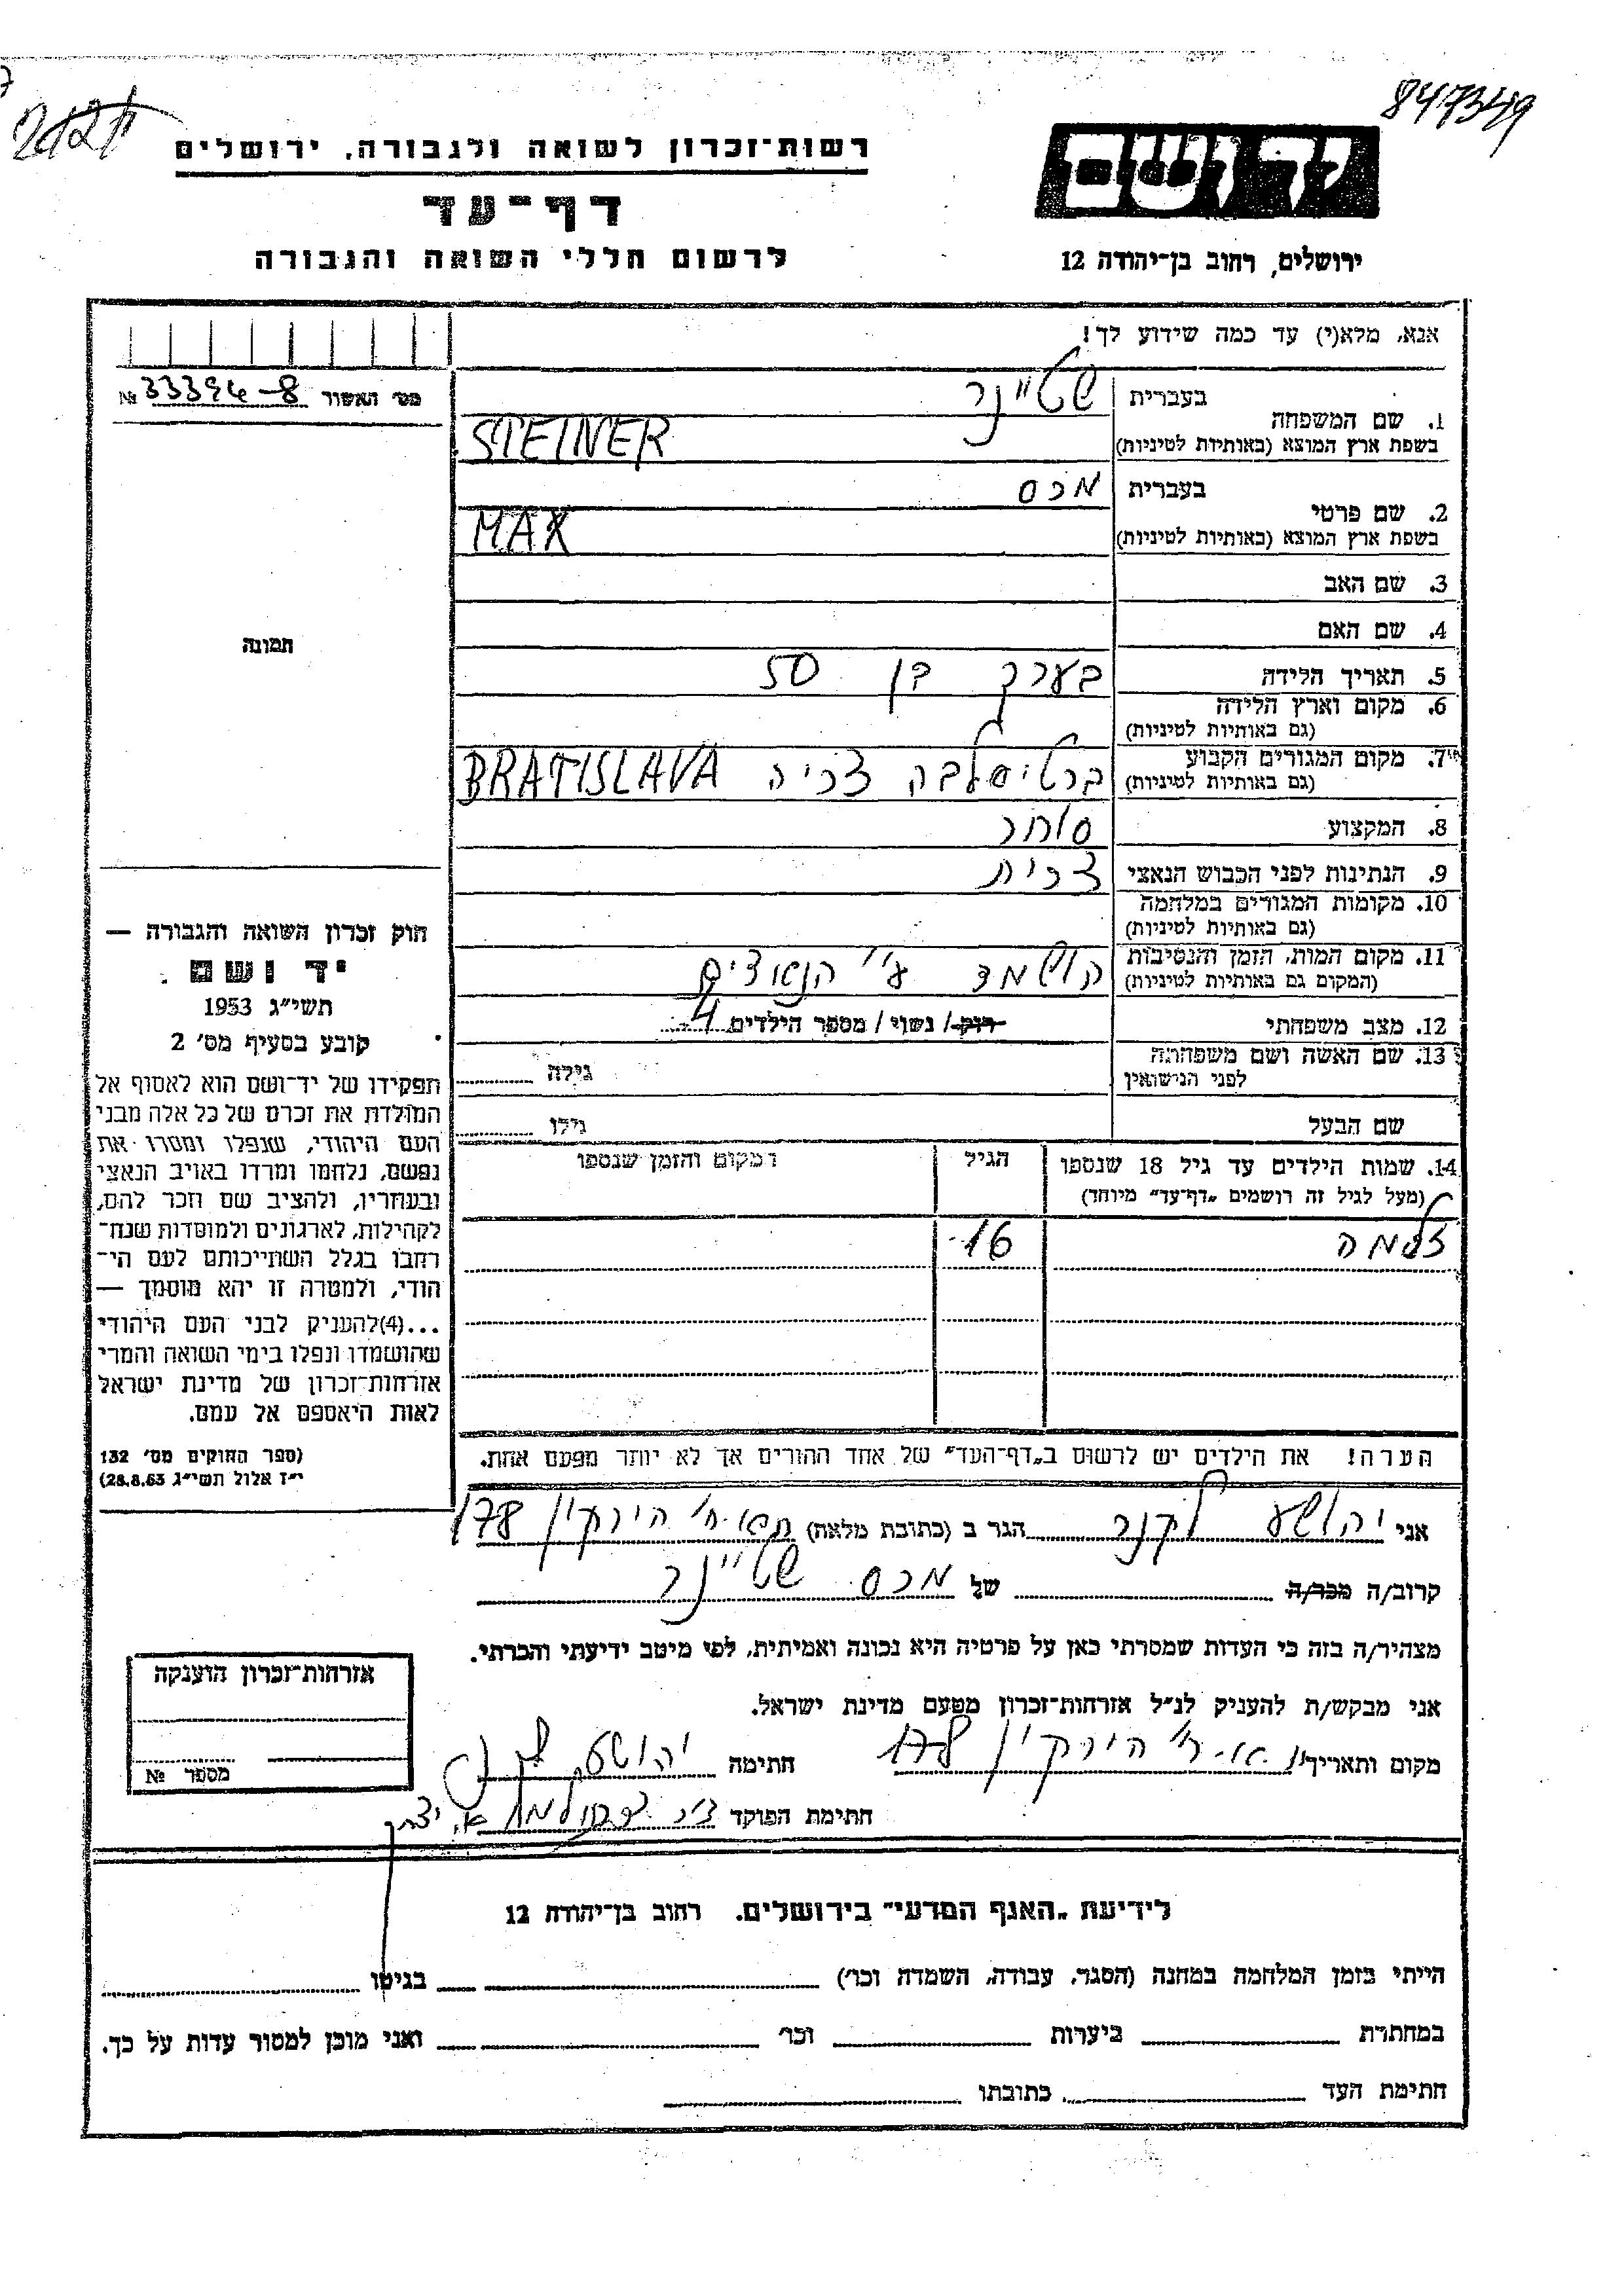 847349
רשות־זכרון לשואה ולגבורה, ירושלים
יד ושם
דף־עד
לרשום חללי השואה והגבורה
ירושלים, רחוב בן־יהודה 12
אנא, מלא(י) עד כמה שידוע לך!
מס׳ האשור № 33394-8
1. שם המשפחה
בעברית שטיינר
בשפת ארץ המוצא (באותיות לטיניות) STEINER
2. שם פרטי
בעברית מכס
בשפת ארץ המוצא (באותיות לטיניות) MAX
3. שם האב
4. שם האם
תמונה
5. תאריך הלידה בערך בן 50
6. מקום וארץ הלידה
(גם באותיות לטיניות)
7. מקום המגורים הקבוע ברטיסלבה צכיה BRATISLAVA
(גם באותיות לטיניות)
8. המקצוע סוחר
9. הנתינות לפני הכבוש הנאצי צכית
10. מקומות המגורים במלחמה
(גם באותיות לטיניות)
11. מקום המות, הזמן והנסיבות הושמד ע״י הנאצים
(המקום גם באותיות לטיניות)
12. מצב משפחתי רוק / נשוי / מספר הילדים 4
13. שם האשה ושם משפחתה גילה
לפני הנישואין
שם הבעל גילו
14. שמות הילדים עד גיל 18 שנספו הגיל המקום והזמן שנספו
(מעל לגיל זה רושמים „דף־עד״ מיוחד)
זלמה 16
הערה! את הילדים יש לרשום ב„דף־העד״ של אחד ההורים אך לא יותר מפעם אחת.
חוק זכרון השואה והגבורה —
יד ושם
תשי״ג 1953
קובע בסעיף מס׳ 2
תפקידו של יד־ושם הוא לאסוף אל
המולדת את זכרם של כל אלה מבני
העם היהודי, שנפלו ומסרו את
נפשם, נלחמו ומרדו באויב הנאצי
ובעוזריו, ולהציב שם וזכר להם,
לקהילות, לארגונים ולמוסדות שנח־
רבו בגלל השתייכותם לעם הי־
הודי, ולמטרה זו יהא מוסמך —
...(4)להעניק לבני העם היהודי
שהושמדו ונפלו בימי השואה והמרי
אזרחות־זכרון של מדינת ישראל
לאות היאספם אל עמם.
(ספר החוקים מס׳ 132
י״ז אלול תשי״ג 28.8.53)
אני יהושע לקנר הגר ב (כתובת מלאה) הירקון 178
קרוב/ה מכר/ה של מכס שטיינר
מצהיר/ה בזה כי העדות שמסרתי כאן על פרטיה היא נכונה ואמיתית, לפי מיטב ידיעתי והכרתי.
אני מבקש/ת להעניק לנ״ל אזרחות־זכרון מטעם מדינת ישראל.
מקום ותאריך הירקון 178 חתימה יהושע
חתימת הפוקד
אזרחות־זכרון הוענקה
מספר №
לידיעת „האגף המדעי״ בירושלים. רחוב בן־יהודה 12
הייתי בזמן המלחמה במחנה (הסגר, עבודה, השמדה וכו׳) בגיטו
במחתרת ביערות וכו׳ ואני מוכן למסור עדות על כך.
חתימת העד כתובתו